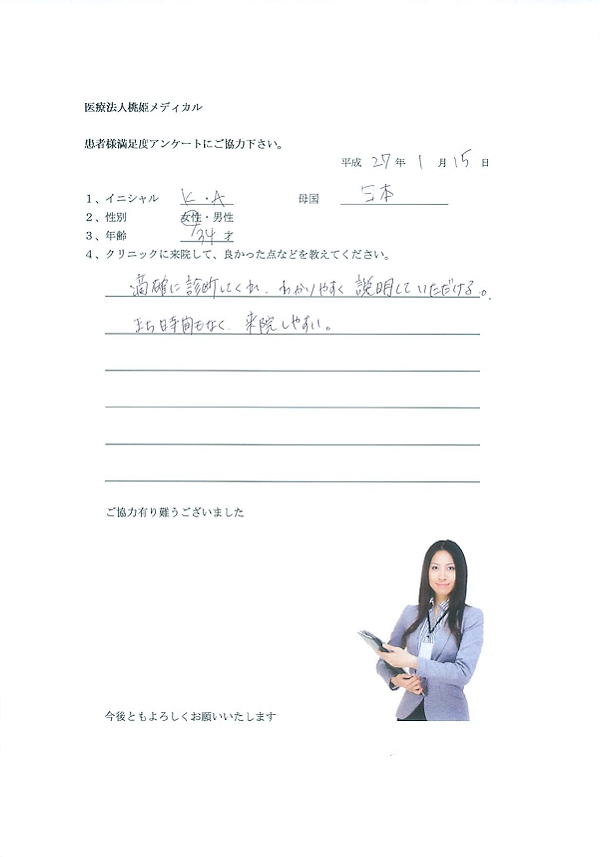 医療法人桃姫メディカル
患者様満足度アンケートにご協力下さい。
平成 27 年 1 月 15 日
1、イニシャル K・A 母国 日本
2、性別 女性・男性
3、年齢 34 才
4、クリニックに来院して、良かった点などを教えてください。
適確に診断してくれ、わかりやすく説明していただける。
まち時間もなく、来院しやすい。
ご協力有り難うございました
今後ともよろしくお願いいたします